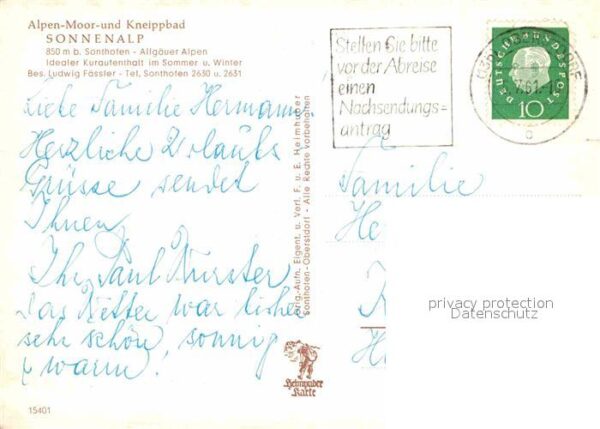 Alpen-Moor-und Kneippbad
SONNENALP
850 m b. Sonthofen - Allgäuer Alpen
Idealer Kuraufenthalt im Sommer u. Winter
Bes. Ludwig Fässler - Tel. Sonthofen 2630 u. 2631
Liebe Familie Hermann
Herzliche Urlaubs
Grüsse sendet
Ihnen
Ihr Paul Wurster
Das Wetter war bisher
sehr schön, sonnig
& warm!
15401
Orig.-Aufn. Eigent. u. Verl. F. u. E. Heimhuber
Sonthofen-Oberstdorf - Alle Rechte vorbehalten
Heimhuber
Karte
Stellen Sie bitte
vor der Abreise
einen
Nachsendungs=
antrag
DEUTSCHE BUNDESPOST
10
Familie
He
H
privacy protection
Datenschutz